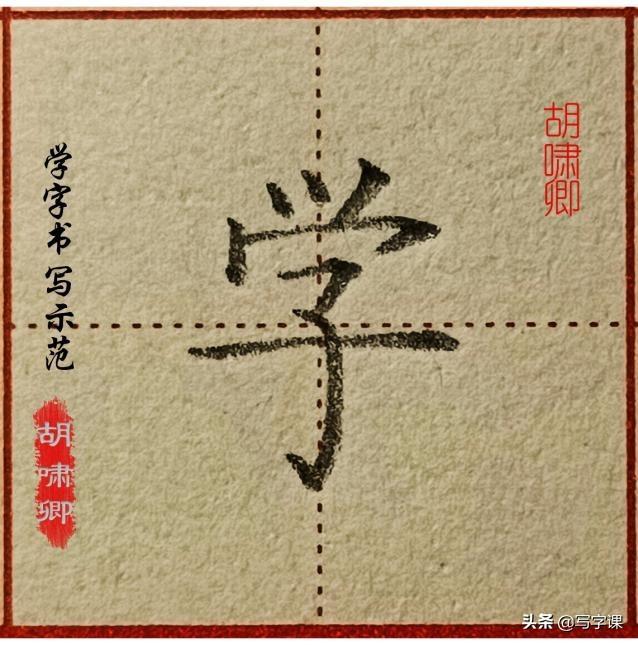 学
学字书写示范
胡啸卿
胡啸卿
头条 @写字课